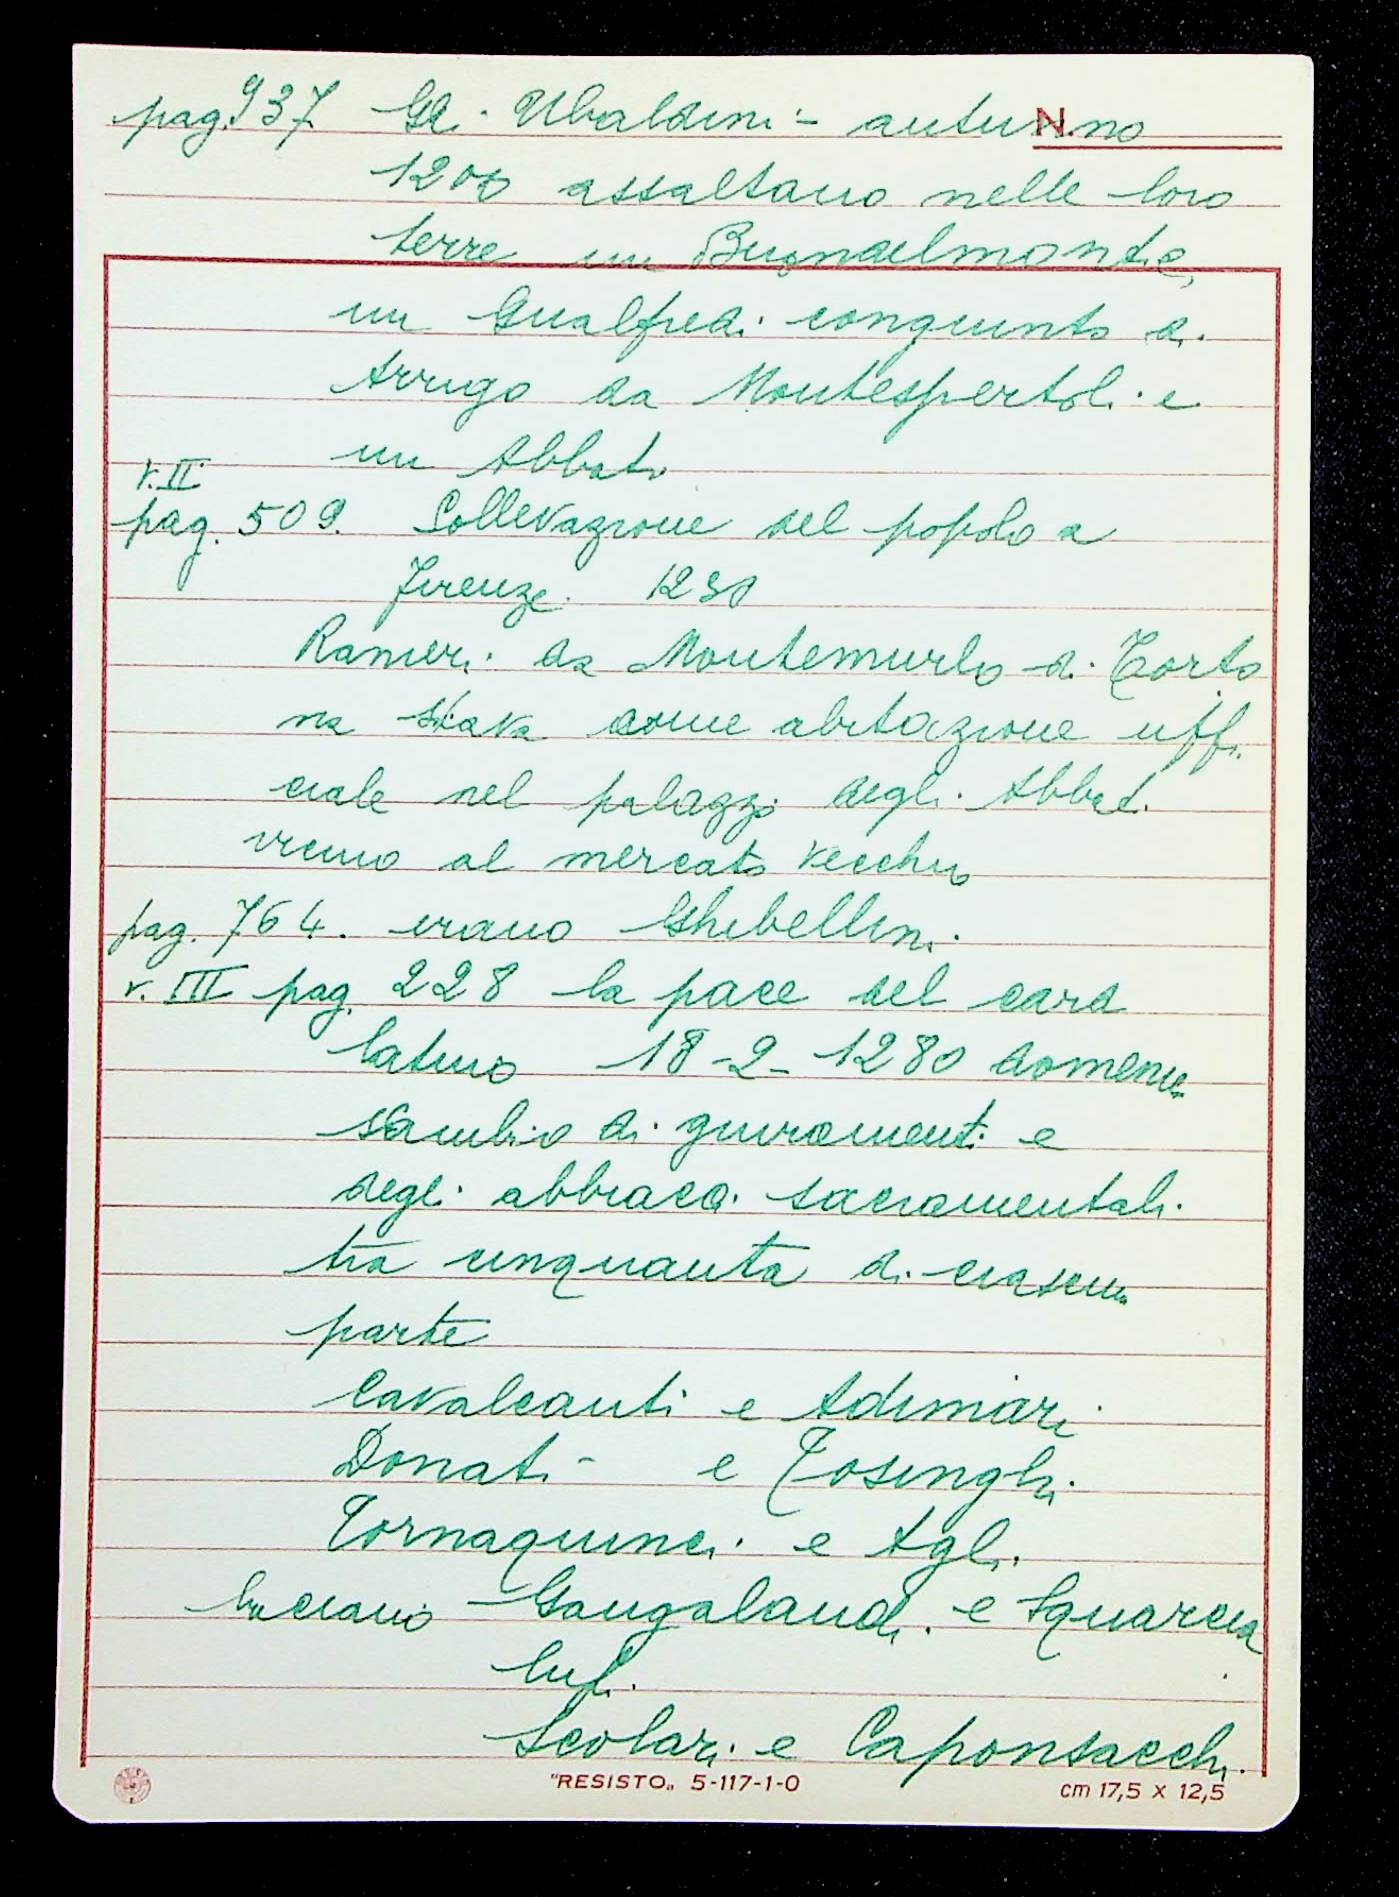 pag. 937 Gli Ubaldini - autunno
N.
1200 assaltano nelle loro
terre un Buondelmonte,
un Gualfredi congiunto di
Arrigo da Montespertoli e
un Abbati
v. II
pag. 509. Sollevazione del popolo a
Firenze. 1250
Ranieri da Montemurlo di Torto
na stava come abitazione uffi
ciale nel palazzo degli Abbati
vicino al mercato vecchio
pag. 764. erano Ghibellini
v. III pag. 228 la pace del card
latino 18-2-1280 domenica
scambio di giuramenti e
degli abbracci sacramentali
tra cinquanta di ciascuna
parte
Cavalcanti e Adimari
Donati - e Tosinghi
Tornaquinci e Agli
luciano - Gangalandi e Squarcia
lupi
Scolari e Caponsacchi
"RESISTO" 5-117-1-0
cm 17,5 x 12,5